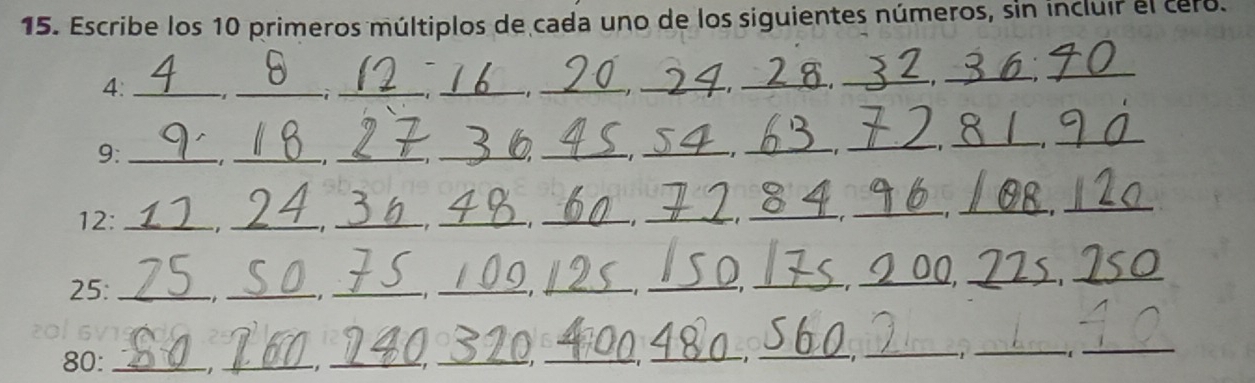 15. Escribe los 10 primeros múltiplos de cada uno de los siguientes números, sin incluir el cero.
4: 4, 8, 12, 16, 20, 24, 28, 32, 36, 40
9: 9, 18, 27, 36, 45, 54, 63, 72, 81, 90
12: 12, 24, 36, 48, 60, 72, 84, 96, 108, 120
25: 25, 50, 75, 100, 125, 150, 175, 200, 225, 250
80: 80, 160, 240, 320, 400, 480, 560,